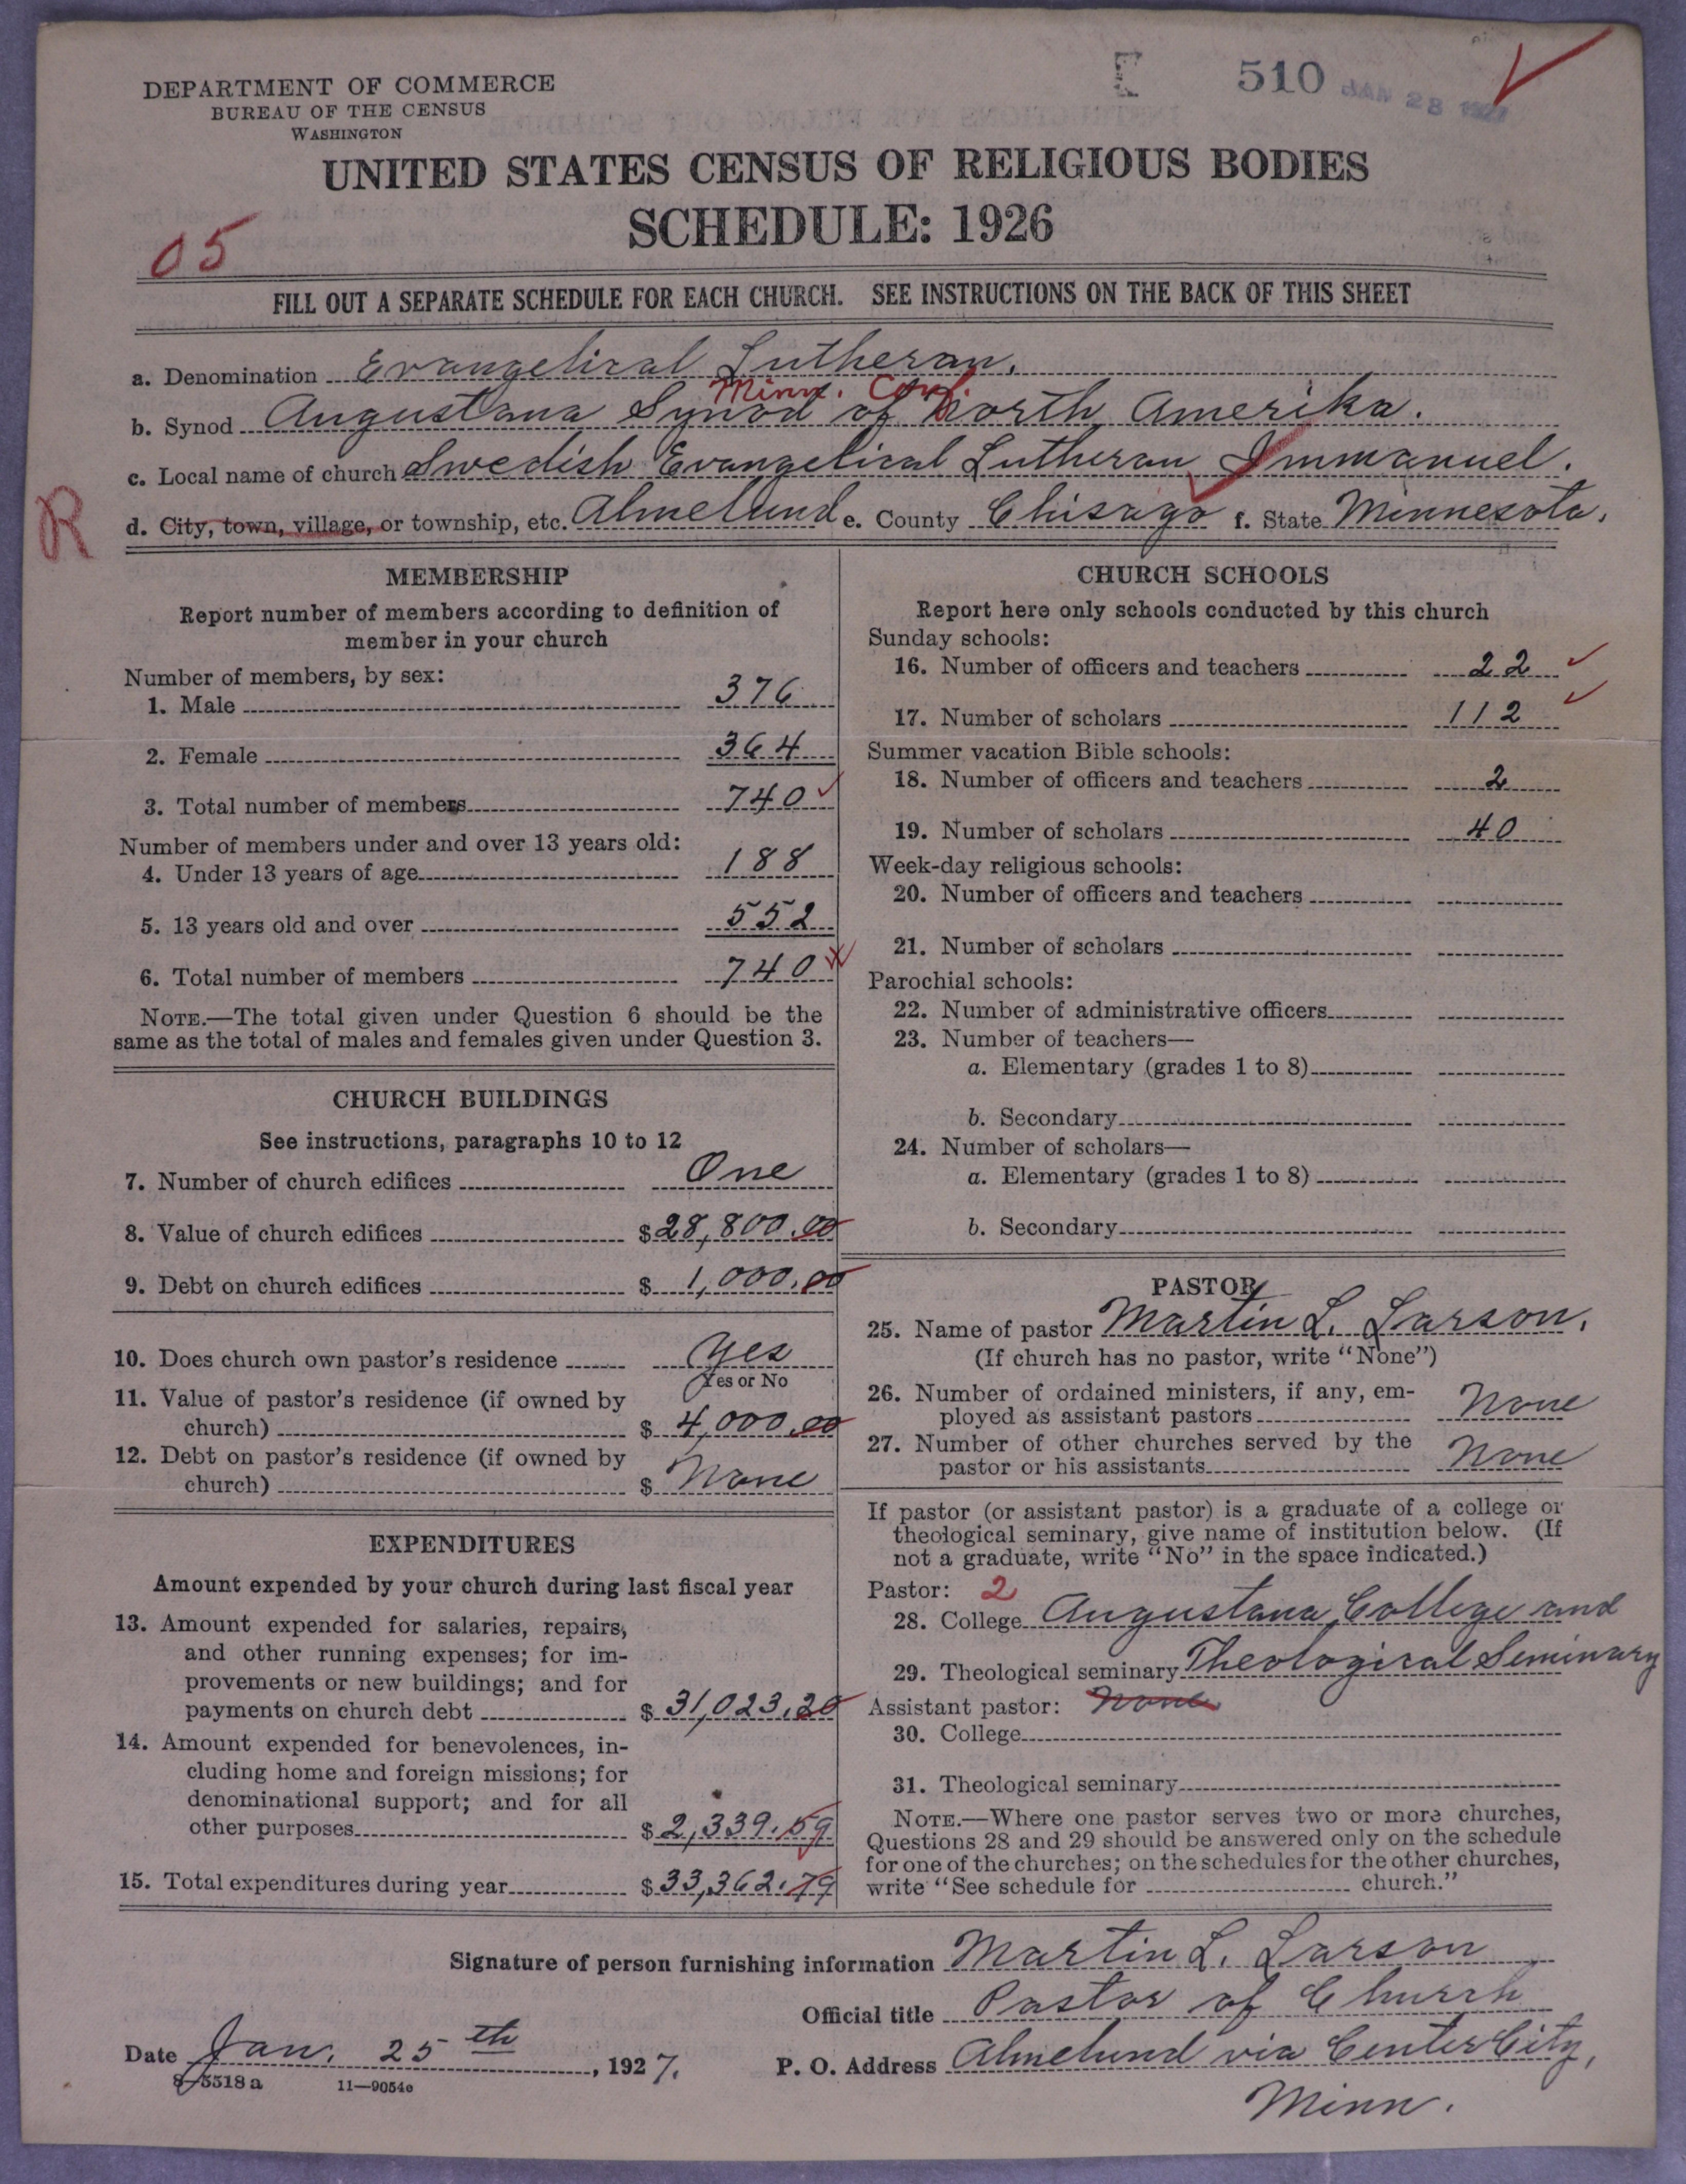 510 JAN 28 1927
DEPARTMENT OF COMMERCE
BUREAU OF THE CENSUS
WASHINGTON
UNITED STATES CENSUS OF RELIGIOUS BODIES
SCHEDULE: 1926
05
FILL OUT A SEPARATE SCHEDULE FOR EACH CHURCH. SEE INSTRUCTIONS ON THE BACK OF THIS SHEET
a. Denomination Evangelical Lutheran.
Minn. Conf.
b. Synod Augustana Synod of North Amerika.
c. Local name of church Swedish Evangelical Lutheran Immanuel.
R
d. City, town, village, or township, etc. Almelund e. County Chisago f. State Minnesota.
MEMBERSHIP
Report number of members according to definition of
member in your church
Number of members, by sex:
1. Male 376
2. Female 364
3. Total number of members 740
Number of members under and over 13 years old:
4. Under 13 years of age 188
5. 13 years old and over 552
6. Total number of members 740
NOTE.—The total given under Question 6 should be the
same as the total of males and females given under Question 3.
CHURCH BUILDINGS
See instructions, paragraphs 10 to 12
7. Number of church edifices One
8. Value of church edifices $28,800.00
9. Debt on church edifices $ 1,000.00
10. Does church own pastor's residence Yes
Yes or No
11. Value of pastor's residence (if owned by
church) $ 4,000.00
12. Debt on pastor's residence (if owned by
church) $ None
EXPENDITURES
Amount expended by your church during last fiscal year
13. Amount expended for salaries, repairs,
and other running expenses; for im-
provements or new buildings; and for
payments on church debt $ 31,023.20
14. Amount expended for benevolences, in-
cluding home and foreign missions; for
denominational support; and for all
other purposes $ 2,339.59
15. Total expenditures during year $ 33,362.79
CHURCH SCHOOLS
Report here only schools conducted by this church
Sunday schools:
16. Number of officers and teachers 22
17. Number of scholars 112
Summer vacation Bible schools:
18. Number of officers and teachers 2
19. Number of scholars 40
Week-day religious schools:
20. Number of officers and teachers
21. Number of scholars
Parochial schools:
22. Number of administrative officers
23. Number of teachers—
a. Elementary (grades 1 to 8)
b. Secondary
24. Number of scholars—
a. Elementary (grades 1 to 8)
b. Secondary
PASTOR
25. Name of pastor Martin L. Larson.
(If church has no pastor, write "None")
26. Number of ordained ministers, if any, em-
ployed as assistant pastors None
27. Number of other churches served by the
pastor or his assistants None
If pastor (or assistant pastor) is a graduate of a college or
theological seminary, give name of institution below. (If
not a graduate, write "No" in the space indicated.)
Pastor: 2
28. College Augustana College and
29. Theological seminary Theological Seminary
Assistant pastor: None
30. College
31. Theological seminary
NOTE.—Where one pastor serves two or more churches,
Questions 28 and 29 should be answered only on the schedule
for one of the churches; on the schedules for the other churches,
write "See schedule for church."
Signature of person furnishing information Martin L. Larson
Official title Pastor of Church
Date Jan. 25th, 1927.
P. O. Address Almelund via Center City,
Minn.
8-5518a 11—9054a